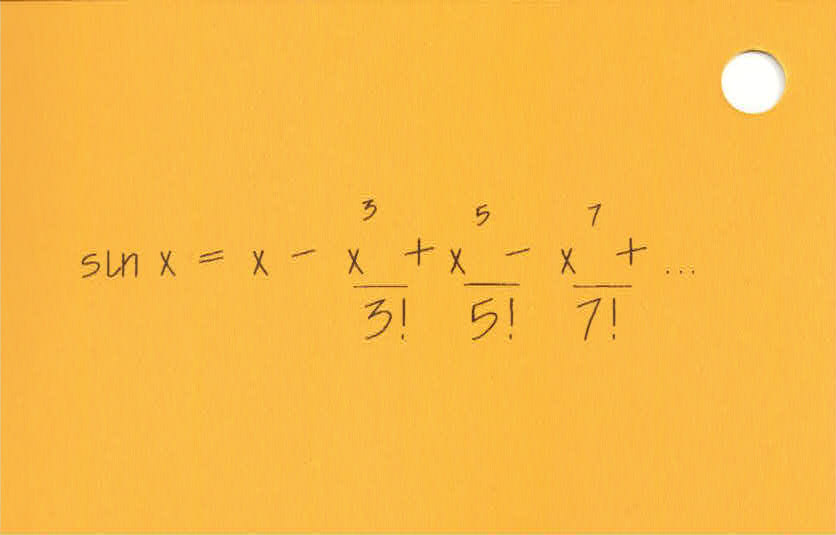 sin x = x - x³/3! + x⁵/5! - x⁷/7! + ...